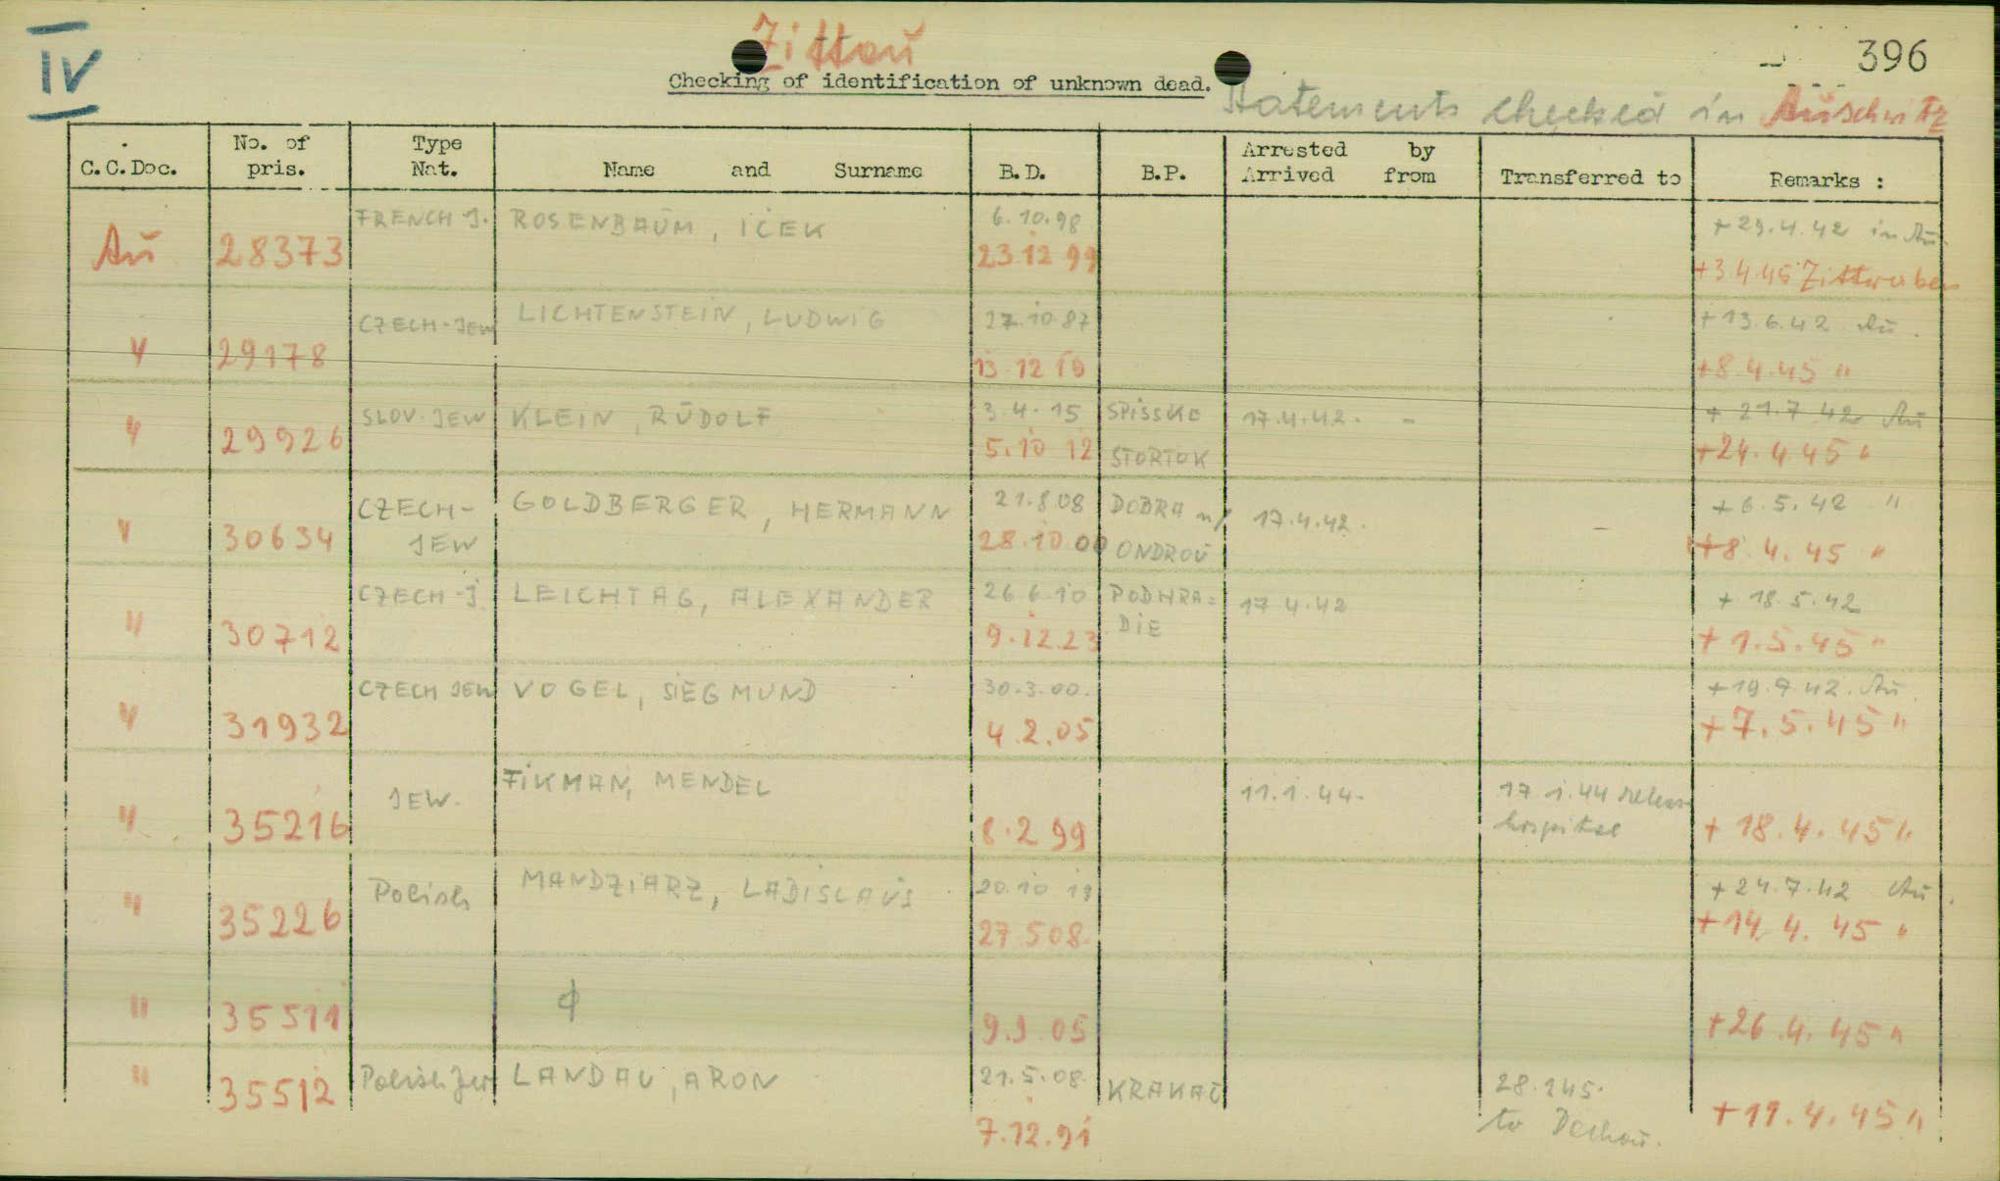 IV
Zittau
396
Checking of identification of unknown dead.
Statements checked in Auschwitz
C.C.Doc. No. of pris. Type Nat. Name and Surname B.D. B.P. Arrested by Arrived from Transferred to Remarks :
FRENCH J. ROSENBAUM, ICEK 6.10.98 +29.4.42 in Au.
Au 28373 23.12 99 +3.4.45
CZECH-JEW LICHTENSTEIN, LUDWIG 27.10.87 +13.6.42 Au.
" 29178 13.12 +8.4.45 "
SLOV-JEW KLEIN, RUDOLF 3.4.15 SPISSKE 17.4.42. - + 21.7.42 Au
" 29926 5.10 12 STORTOK +24.4 45 "
CZECH- GOLDBERGER, HERMANN 21.8.08 DOBRA n/ 17.4.42. - +6.5.42 "
" 30634 JEW 28.10 00 ONDROU +8.4.45 "
CZECH-J LEICHTAG, ALEXANDER 26 6 10 PODHRA= 17 4.42 + 18.5.42
" 30712 9.12.23 DIE + 1.5.45 "
CZECH JEW VOGEL, SIEGMUND 30.3.00. +19.9.42. Au.
" 31932 4.2.05 +7.5.45 "
JEW. FIKMAN, MENDEL 11.1.44. 17 1.44
" 35216 8.2 99 hospital + 18.4.45 "
Polish MANDZIARZ, LADISLAUS 20.10 19 +24.7.42 Au.
" 35226 27 5 08. +14.4.45 "
" 35511 9.9.05 +26.4.45 "
" 35512 Polish Jew LANDAU, ARON 21.5.08. KRAKAU 28.1.45.
7.12.91 to Dachau. +11.4.45 "